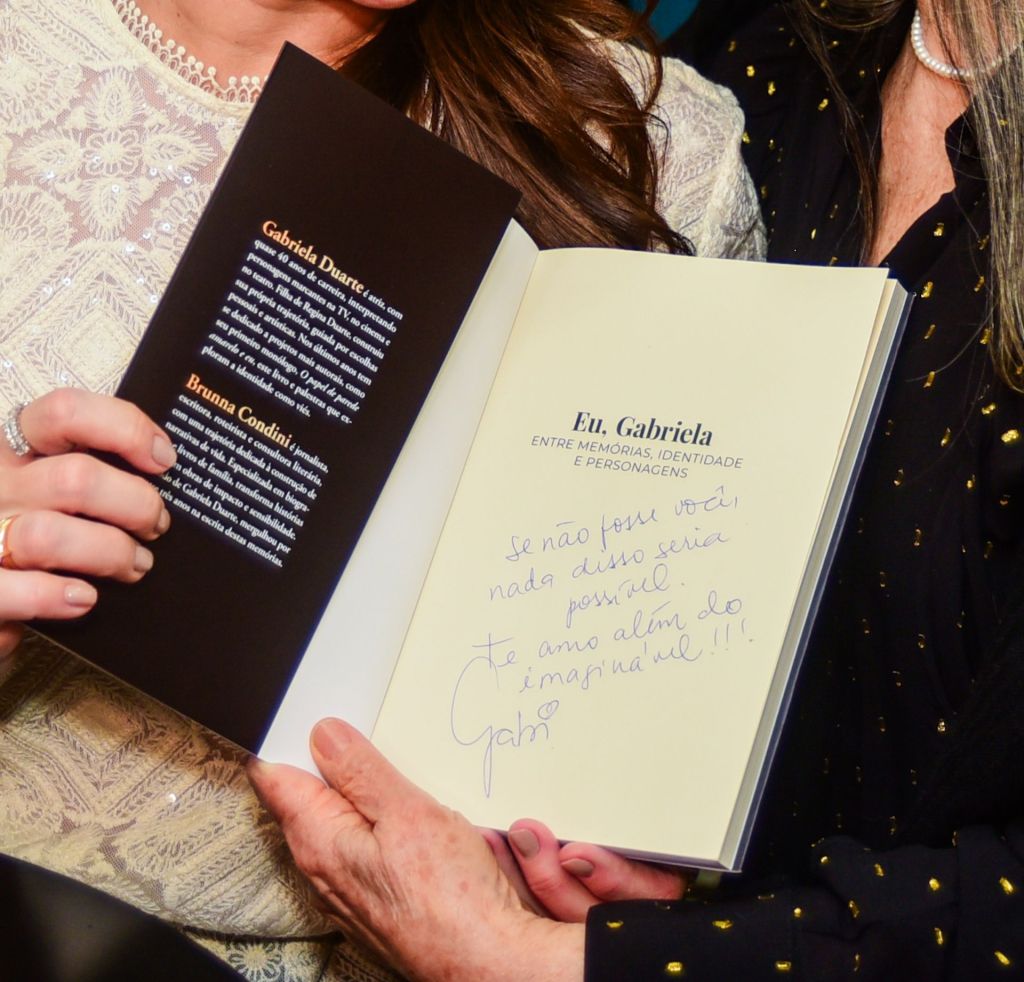 Gabriela Duarte é atriz, com
quase 40 anos de carreira, interpretando
personagens marcantes na TV, no cinema e
no teatro. Filha de Regina Duarte, construiu
sua própria trajetória, guiada por escolhas
pessoais e artísticas. Nos últimos anos tem
se dedicado a projetos mais autorais, como
seu primeiro monólogo, O papel de parede
amarelo e eu, este livro e palestras que ex-
ploram a identidade como viés.
Brunna Condini é jornalista,
escritora, roteirista e consultora literária,
com uma trajetória dedicada à construção de
narrativas de vida. Especializada em biogra-
livros de família, transforma histórias
em obras de impacto e sensibilidade.
de Gabriela Duarte, mergulhou por
três anos na escrita destas memórias.
Eu, Gabriela
ENTRE MEMÓRIAS, IDENTIDADE
E PERSONAGENS
se não fosse você,
nada disso seria
possível.
Te amo além do
imaginável!!!
Gabi